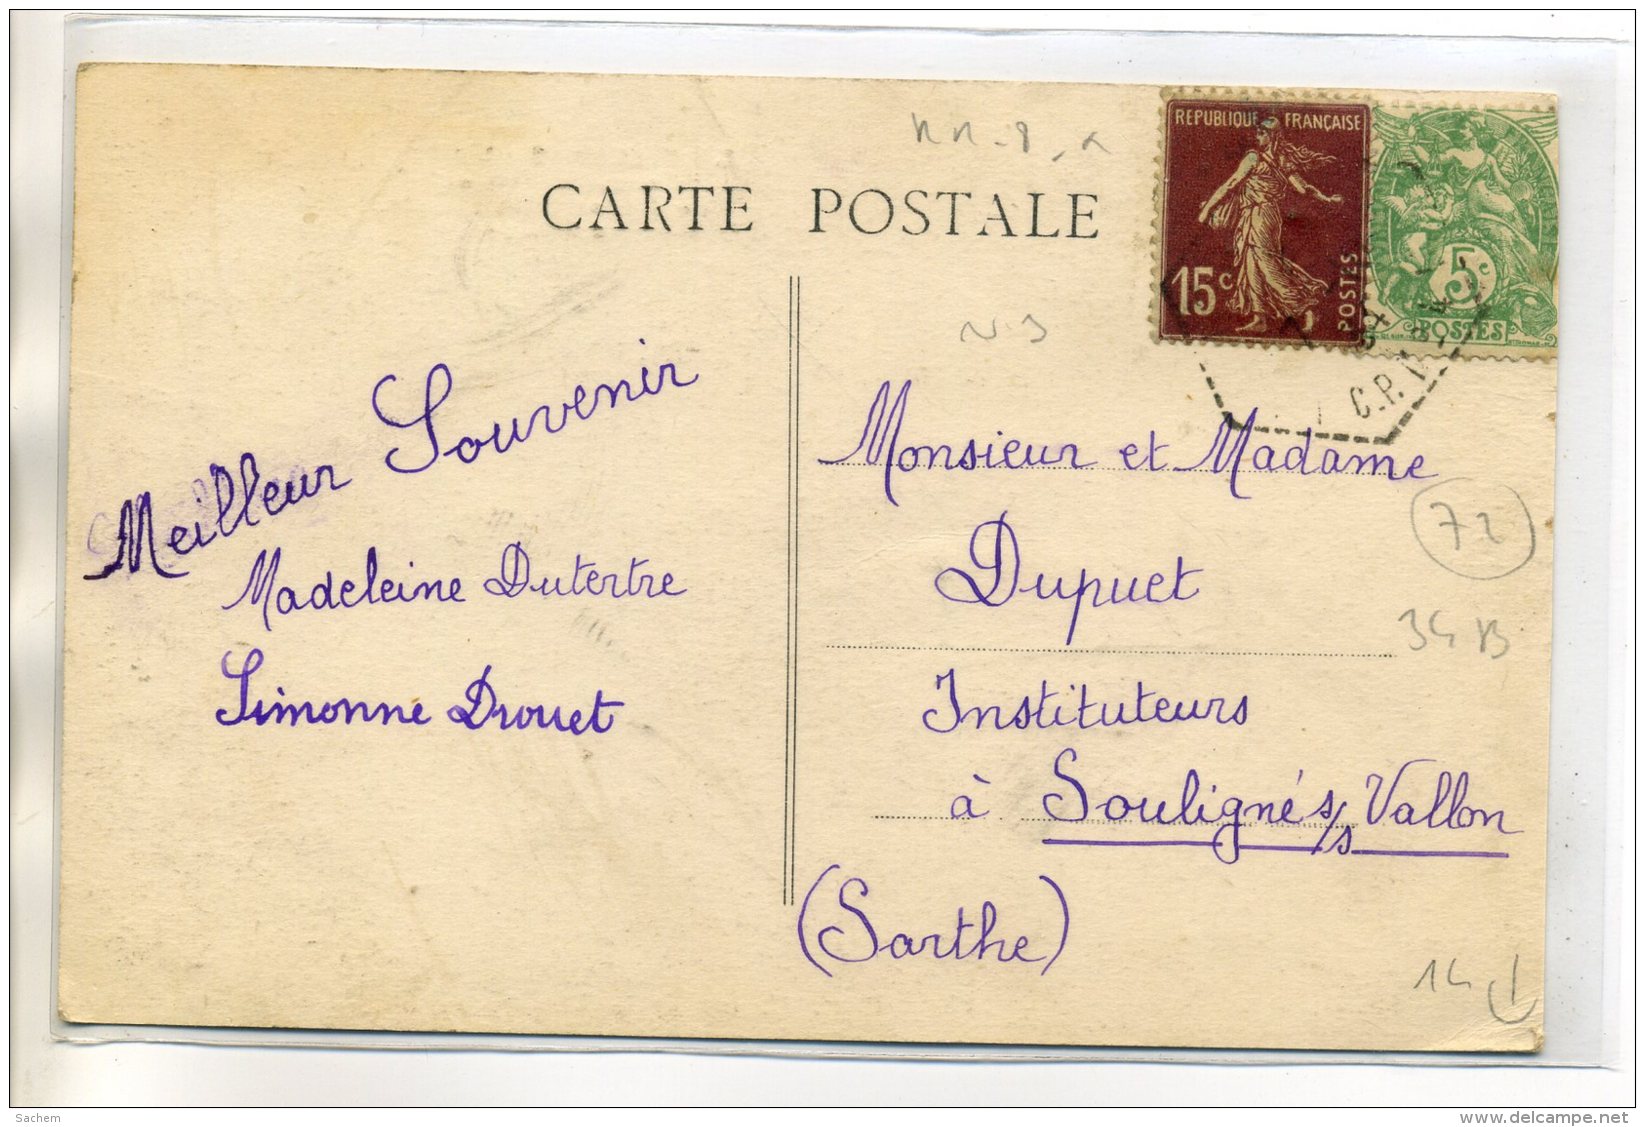 CARTE POSTALE
RÉPUBLIQUE FRANÇAISE
15c
POSTES
5c
POSTES
C.P.
Meilleur Souvenir
Madeleine Dutertre
Simonne Drouet
Monsieur et Madame
Dupuet
Instituteurs
à Souligné s/s Vallon
(Sarthe)
72
14
Sachem
www.delcampe.net